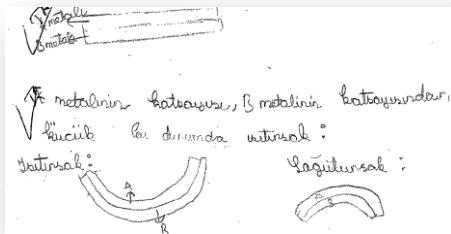 A metali
B metali
A metalinin katsayısı, B metalinin katsayısından
küçük bu durumda ısıtırsak :
Isıtırsak :
Soğutursak :
A
B
A
B